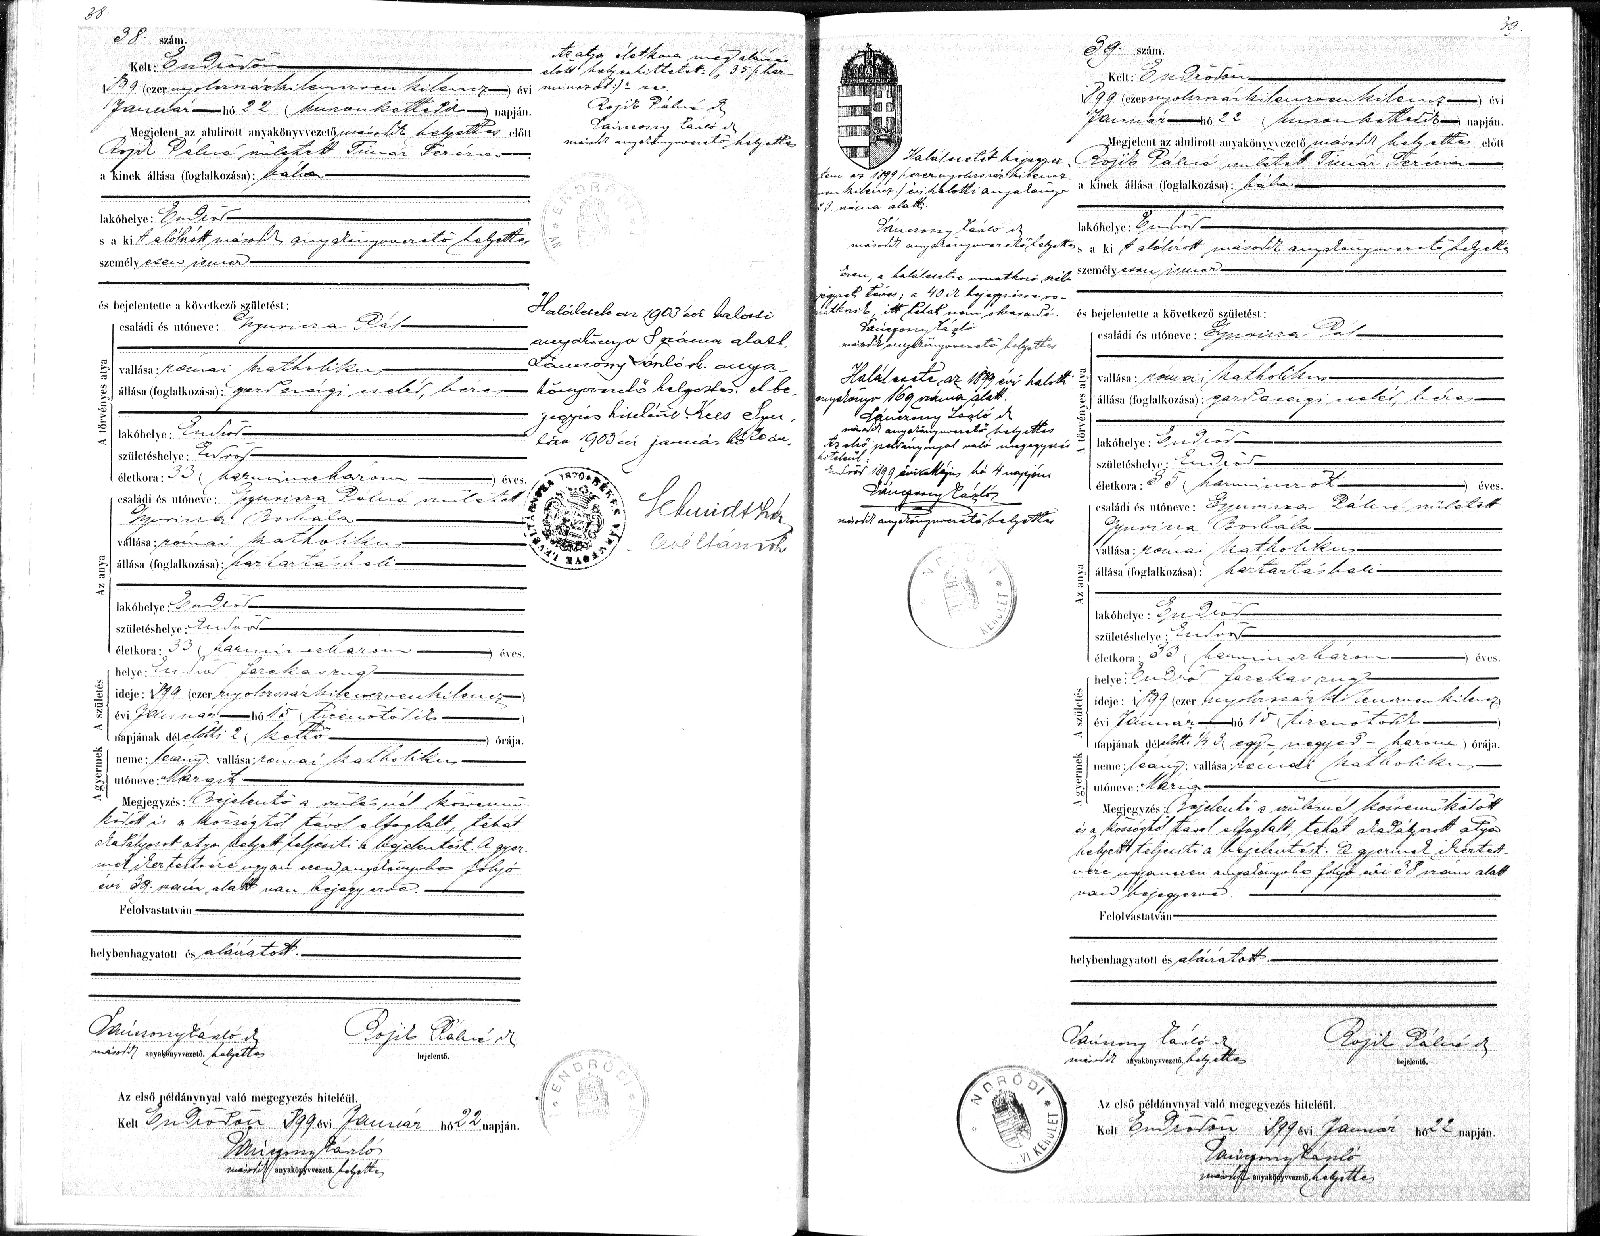 38
38. szám.
Kelt: Endrődön
1899 (ezernyolcszázkilencvenkilenc) évi
Január hó 22 (huszonkettedik) napján.
Megjelent az alulirott anyakönyvvezető második helyettes előtt
Rojik Pálné született Tímár Terézia
a kinek állása (foglalkozása): bába
lakóhelye: Endrőd
s a kit alólírott második anyakönyvvezető helyettes
személyesen ismer
és bejelentette a következő születést:
A törvényes atya
családi és utóneve: Gyuricza Pál
vallása: római katholikus
állása (foglalkozása): gazdasági cseléd, béres
lakóhelye: Endrőd
születéshelye: Endrőd
életkora: 33 (harminczhárom) éves.
Az anya
családi és utóneve: Gyuricza Pálné született
Gyuricza Borbála
vallása: római katholikus
állása (foglalkozása): háztartásbeli
lakóhelye: Endrőd
születéshelye: Endrőd
életkora: 33 (harminczhárom) éves.
A születés
helye: Endrőd farekaszug
ideje: 1899 (ezernyolcszázkilencvenkilencz)
évi Január hó 15 (tizenötödik)
napjának délelőtti 2 (kettő) órája.
A gyermek
neme: leány; vallása: római katholikus
utóneve: Margit
Megjegyzés: Bejelentő a szülésnél közremű-
ködött és a községtől távol elfoglalt, tehát
akadályozott atya helyett teljesíti a bejelentést. A gyer-
mek ikertestvére ugyan ezen anyakönyvbe folyó
évi 39. szám alatt van bejegyezve.
Felolvastatván
helybenhagyatott és aláíratott.
Lánczony László sk
második anyakönyvvezető. helyettes
Rojik Pálné sk
bejelentő.
Az első példánynyal való megegyezés hiteléül.
Kelt Endrődön 1899 évi Január hó 22 napján.
Lánczony László
második anyakönyvvezető. helyettes
Az atya életkora még aláírás
előtt helyesbíttetett
Rojik Pálné sk
Lánczony László sk
második anyakönyvvezető helyettes
ENDRŐDI
Halálesete az 1903 évi halotti
anyakönyv 8 száma alatt.
Lánczony László sk. anya-
könyvvezető helyettes. el be-
jegyzés hiteléül Kecs Gyu-
lára 1903 évi január hó
BÉKÉS VÁRMEGYE LEVÉLTÁRNOKA 1876
Schmidt
levéltárnok
ENDRŐDI
39.
39. szám.
Kelt: Endrődön
1899 (ezernyolcszázkilencvenkilencz) évi
Január hó 22 (huszonkettedik) napján.
Megjelent az alulirott anyakönyvvezető második helyettes előtt
Rojik Pálné született Tímár Terézia
a kinek állása (foglalkozása): bába
lakóhelye: Endrőd
s a kit alólírott második anyakönyvvezető helyettes
személyesen ismer
és bejelentette a következő születést:
A törvényes atya
családi és utóneve: Gyuricza Pál
vallása: római katholikus
állása (foglalkozása): gazdasági cseléd, béres
lakóhelye: Endrőd
születéshelye: Endrőd
életkora: 35 (harminczöt) éves.
Az anya
családi és utóneve: Gyuricza Pálné született
Gyuricza Borbála
vallása: római katholikus
állása (foglalkozása): háztartásbeli
lakóhelye: Endrőd
születéshelye: Endrőd
életkora: 33 (harminczhárom) éves.
A születés
helye: Endrőd farekaszug
ideje: 1899 (ezernyolcszázkilencvenkilencz)
évi Január hó 15 (tizenötödik)
napjának délelőtti 1/4 3 (egy-negyed-három) órája.
A gyermek
neme: leány; vallása: római katholikus
utóneve: Mária
Megjegyzés: Bejelentő a szülésnél közreműködött
és a községtől távol elfoglalt, tehát akadályozott atya
helyett teljesíti a bejelentést. A gyermek ikertest-
vére ugyanezen anyakönyvbe folyó évi 38 szám alatt
van bejegyezve.
Felolvastatván
helybenhagyatott és aláíratott.
Lánczony László sk
második anyakönyvvezető. helyettes
Rojik Pálné sk
bejelentő.
Az első példánynyal való megegyezés hiteléül.
Kelt Endrődön 1899 évi Január hó 22 napján.
Lánczony László
második anyakönyvvezető. helyettes
Halálesetét bejegyez-
tem az 1899 (ezernyolcszázkilencz-
venkilencz) évi halotti anyakönyv
száma alatt.
Lánczony László sk
második anyakönyvvezető helyettes
Ezen, a halálesetre vonatkozó, szél-
jegyzet téves; a 40 ik bejegyzésre vo-
natkozik, itt tehát nem
Lánczony László
második anyakönyvvezető helyettes
Halálesete az 1899 évi halotti
anyakönyv 169 száma alatt.
Lánczony László sk
második anyakönyvvezető helyettes
Az első példánynyal való megegyezés
hiteléül.
Endrőd 1899 évi május hó 4 napján
Lánczony László
második anyakönyvvezető helyettes
ENDRŐDI KERÜLET
ENDRŐDI VI KERÜLET